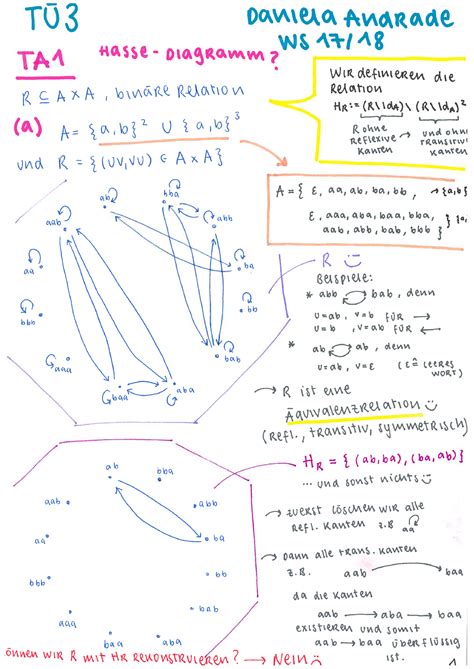 TÜ3
Daniela Andrade
WS 17/18
TA1 Hasse-Diagramm?
R ⊆ A×A, binäre Relation
(a) A = {a,b}² ∪ {a,b}³
und R = {(uv,vu) ∈ A×A}
Wir definieren die
Relation
H_R := (R\Id_A) \ (R\Id_A)²
R ohne
reflexive
Kanten
und ohne
transitive
Kanten
A = { ε, aa, ab, ba, bb, → {a,b}
ε, aaa, aba, baa, bba,
aab, abb, bab, bbb }
aab
ab
bba
abb
ba
bab
aba
baa
aaa
bbb
bb
aa
R
Beispiele:
* abb bab, denn
u=ab, v=b für →
u=b, v=ab für ←
* ab ab, denn
u=ab, v=ε (ε ≙ leeres
Wort)
→ R ist eine
Äquivalenzrelation
(refl., transitiv, symmetrisch)
H_R = {(ab,ba), (ba,ab)}
...und sonst nichts
ab
bba
abb
ba
bab
aba
baa
aaa
bbb
bb
aa
aab
→ zuerst löschen wir alle
refl. Kanten z.B. aa
→ Dann alle trans. Kanten
z.B. aab baa
da die Kanten
aab → aba → baa
existieren und somit
aab → baa überflüssig
ist.
önnen wir R mit H_R rekonstruieren? → Nein